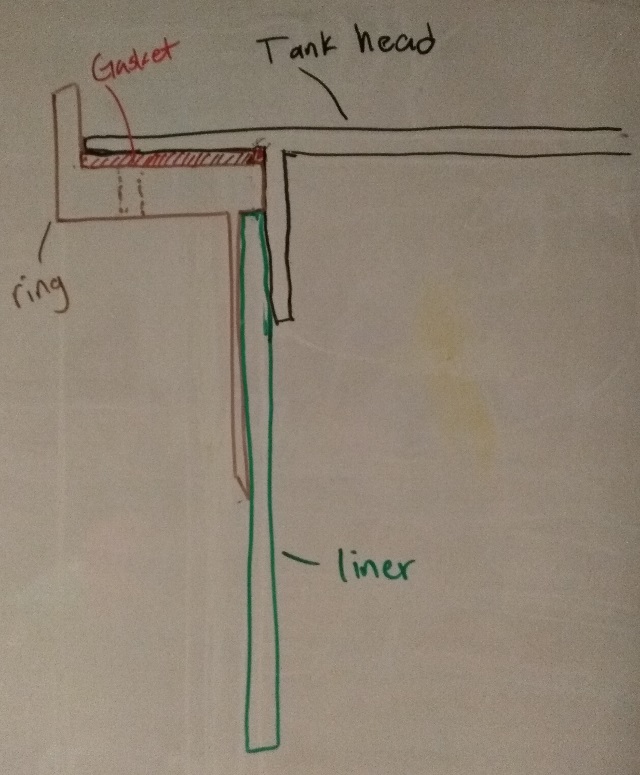 Gasket
Tank head
ring
liner